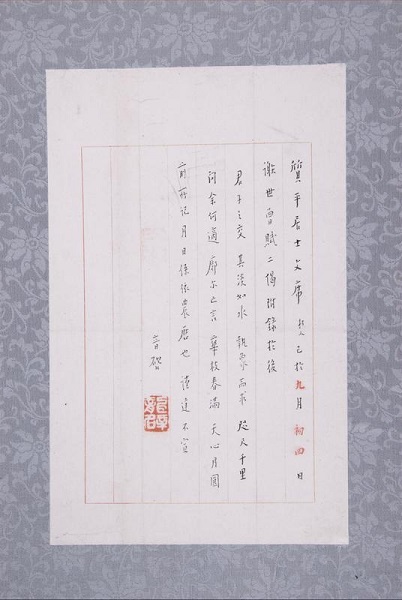 質平居士文席 朽人已於九月初四日
謝世曾賦二偈附錄於後
君子之交 其淡如水 執象而求 咫尺千里
問余何適 廓尔亡言 華枝春滿 天心月圓
前所記月日係依農曆也 謹達不宣
音啟